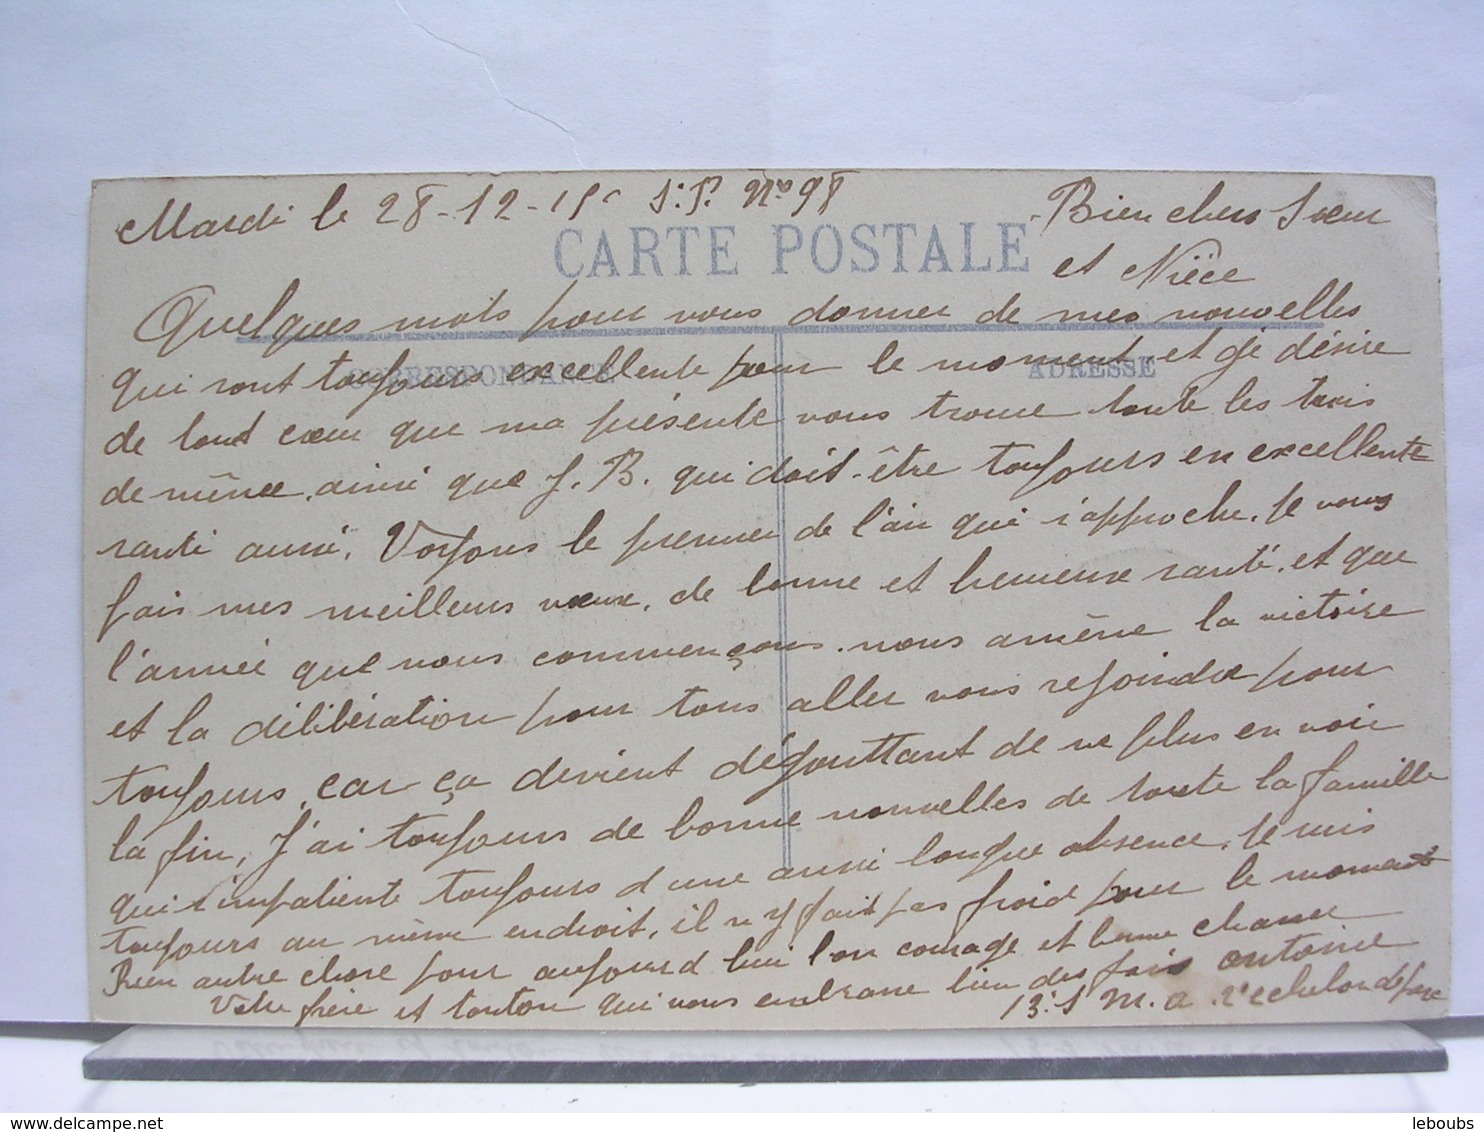 Mardi le 28-12-15 S.P. No 98
Bien chers Sœur
et Nièce
CARTE POSTALE
CORRESPONDANCE
ADRESSE
Quelques mots pour vous donner de mes nouvelles
qui sont toujours excellente pour le moment, et je désire
de tout cœur que ma présente vous trouve toute les trois
de même, ainsi que J. B. qui doit-être toujours en excellente
santé aussi, Voyons le premier de l'an qui s'approche, je vous
fais mes meilleurs vœux, de bonne et heureuse santé, et que
l'année que nous commençons, nous amène la victoire
et la délibération pour tous aller vous rejoindre pour
toujours, car ça devient dégouttant de ne plus en voir
la fin, J'ai toujours de bonne nouvelles de toute la famille
qui s'impatiente toujours d'une aussi longue absence, je suis
toujours au même endroit, il n'y fait pas froid pour le moment
Rien autre chose pour aujourd'hui bon courage et bonne chance
Votre frère et tonton qui vous embrasse bien des fois Antoine
13. S M. a 2e echelon de parc
delcampe.net
leboubs